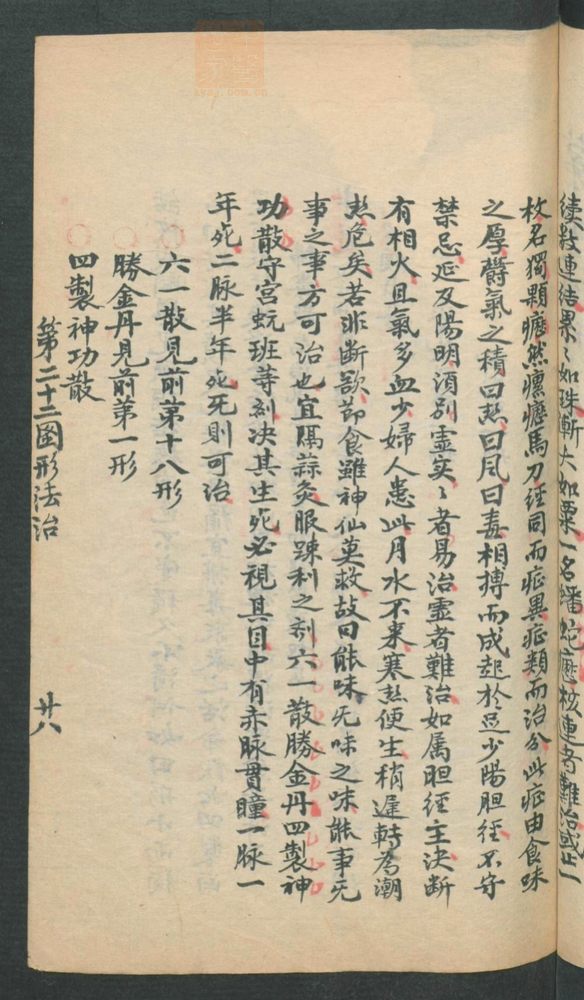 續數連結累〻如珠漸大如栗一名蟠蛇癧核連者難治或止一
枚名獨顆癧然瘰癧馬刀經同而症異症類而治分此症由食味
之厚欝氣之積曰𤍠曰風曰毒相搏而成起於足少陽胆徑不守
禁忌延及陽明須別虛实〻者易治虛者難治如属胆經主决断
有相火且氣多血少婦人患此月水不来寒𤍠便生稍遲轉為潮
𤍠危矣若非断慾節食雖神仙莫救故曰能味无味之味能事无
事之事方可治也宜隔蒜灸服踈利之剂六一散勝金丹四製神
功散守宮蚖班等剂决其生死必視其目中有赤脉貫瞳一脉一
年死二脉半年死死則可治
六一散見前第十八形
勝金丹見前第一形
四製神功散
第二十二图形法治
廿八